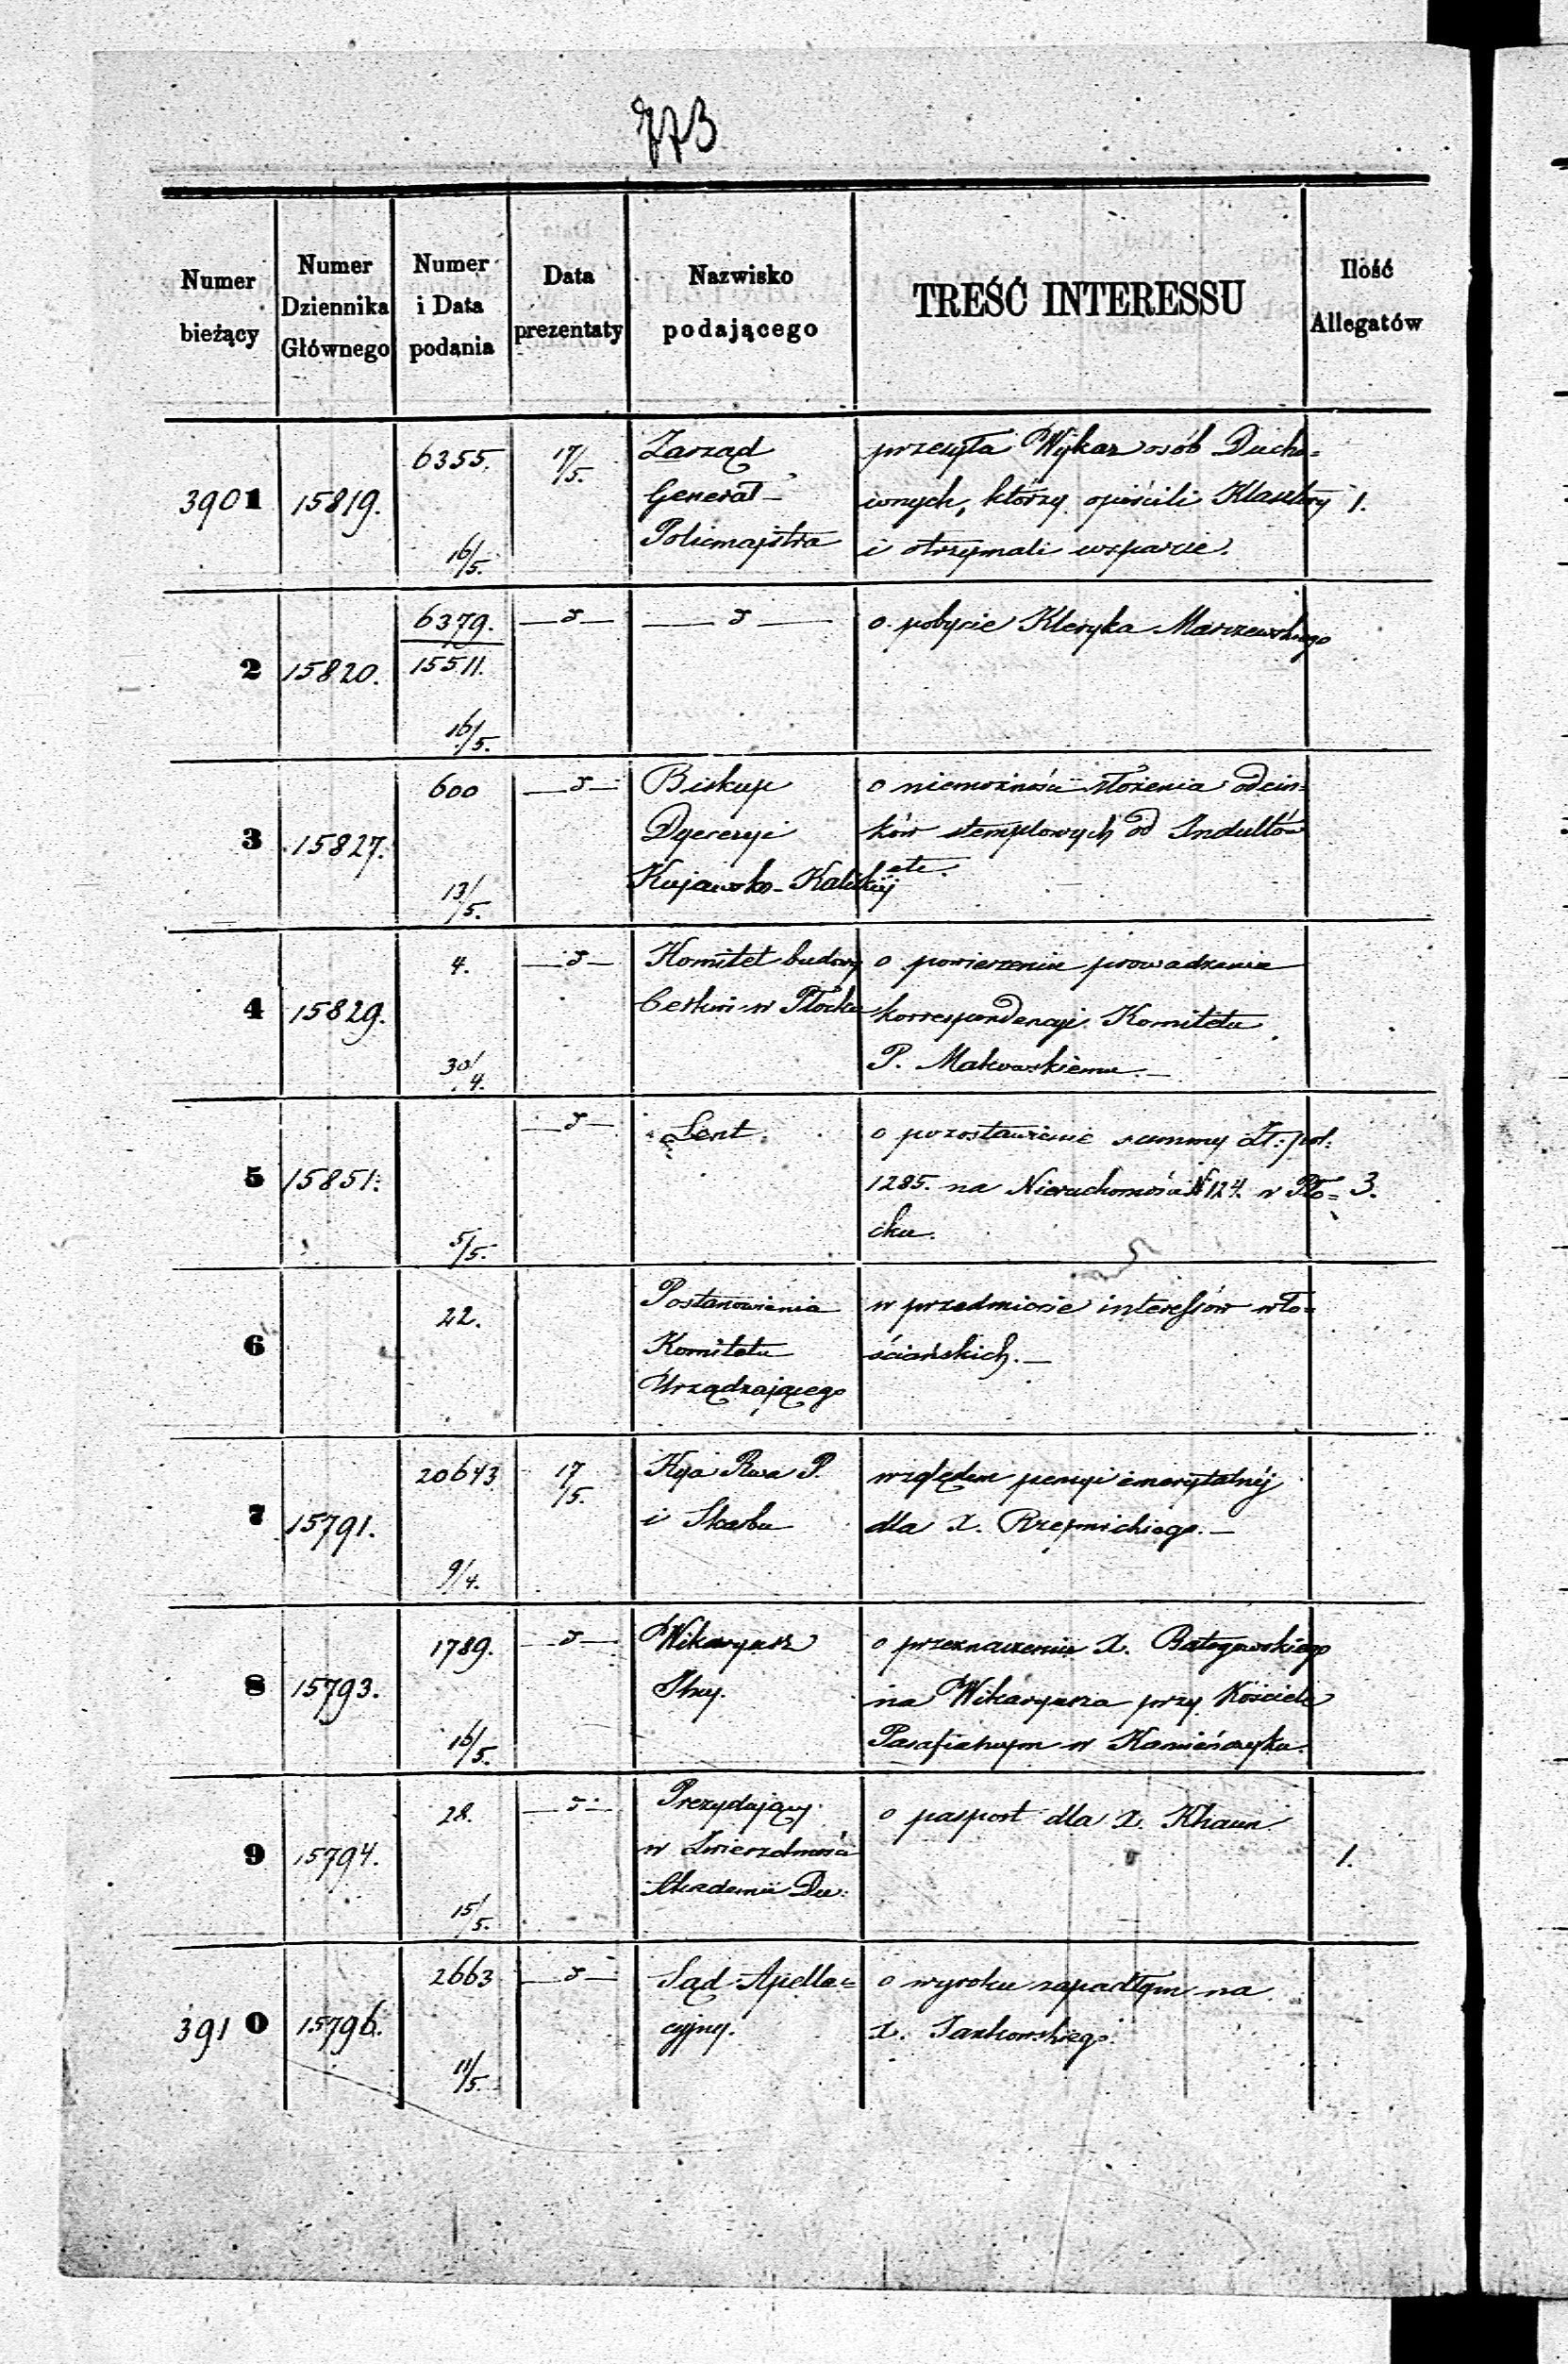 773
Numer bieżący
Numer Dziennika Głównego
Numer i Data podania
Data prezentaty
Nazwisko podającego
TREŚĆ INTERESSU
Ilość Allegatów
3901 15819. 6355. 16/5. 17/5.
Zarząd
Generał-
Policmajstra
przesyła Wykaz osób Ducho=
wnych, którzy opuścili Klasztory
i otrzymali wsparcie.
1.
2 15820. 6379. 15511. 16/5.
o pobycie Kleryka Marszewskiego
3 15827. 600 13/5.
Biskup
Dyecezyi
Kujawsko-Kaliskiej
o niemożności złożenia odcin=
ków stemplowych od Indultów
etc.
4 15829. 4. 30/4.
Komitet budowy
Cerkwi w Płocku
o powierzeniu prowadzenia
korrespondencyi Komitetu
P. Makowskiemu.—
5 15851. 5/5.
Lent.
o pozostawienie summy Zł: pol:
1285. na Nieruchomości N 124. w Pło=
cku.
3.
6 22.
Postanowienia
Komitetu
Urządzającego
w przedmiocie interessów wło=
ściańskich.—
7 15791. 20643 9/4. 17/5.
Kya Rwa P.
i Skarbu
względem pensyi emerytalnéj
dla X. Rzepnickiego.—
8 15793. 1789. 16/5.
Wikaryusz
o przeznaczeniu X.
na Wikaryusza przy Kościele
Parafialnym w Kamieńczyku.
9 15794. 28. 15/5.
Prezydujący
w Zwierzchności
Akademii Du:
o pasport dla X. Khaun
1.
3910 15796. 2663 11/5.
Sąd Apella=
cyjny.
o wyroku zapadłym na
X. Jankowskiego.